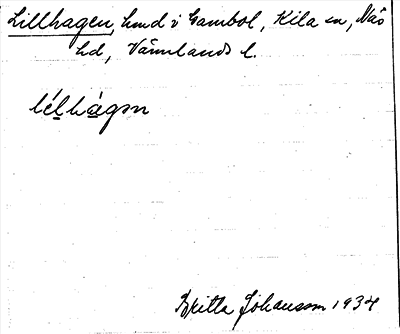 Lillhagen, hmd i Gambol, Kila sn, Näs
hd, Värmlands l.
lélhàgɘn
Britta Johansson 1934